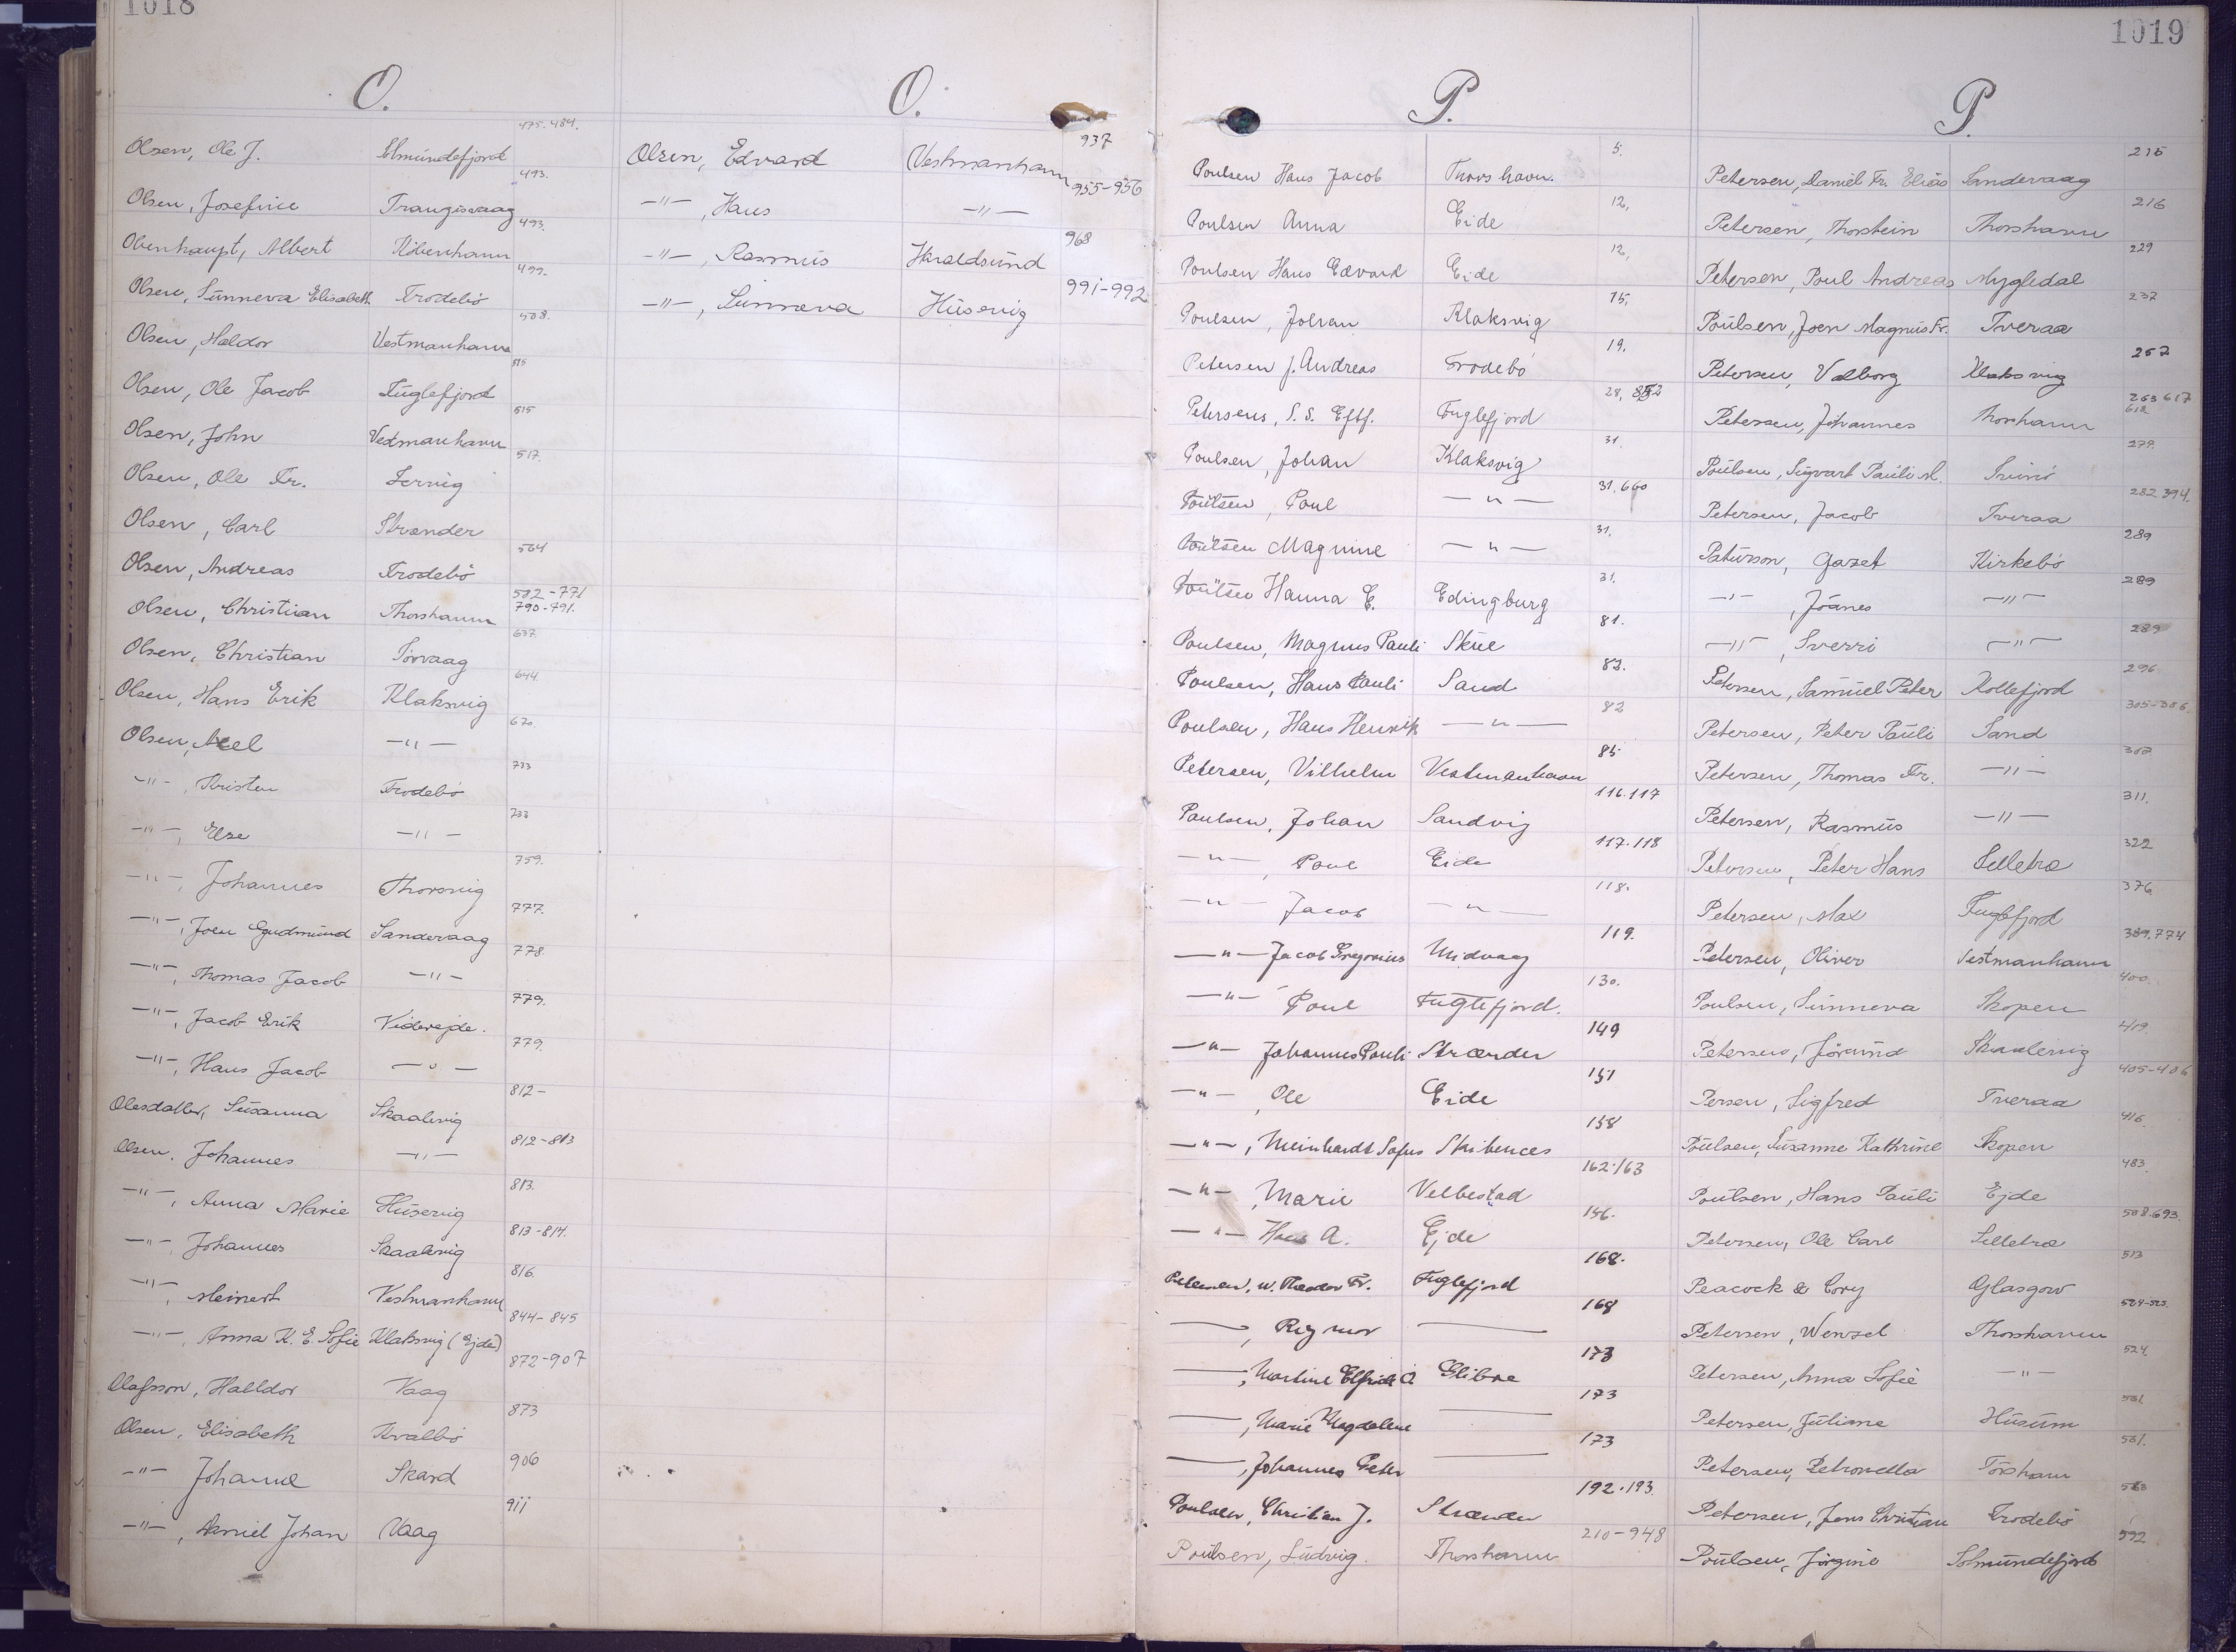 1018
O.
475. 484.
Olsen, Ole J. Elmundefjord
493.
Olsen, Josefine Trangisvaag
493.
Obenhaupt, Albert Köbenhavn
499.
Olsen, Sunneva Elisabeth Frodebö
508.
Olsen, Haldor Vestmanhavn
515
Olsen, Ole Jacob Fuglefjord
515
Olsen, John Vestmanhavn
517.
Olsen, Ole Fr. Lervig
Olsen, Carl Strænder
564
Olsen, Andreas Frodebö
582-771
790-791.
Olsen, Christian Thorshavn
637.
Olsen, Christian Sörvaag
644.
Olsen, Hans Erik Klaksvig
670.
Olsen, Axel -"-
733
-"-, Kristen Frodebö
733
-"-, Else -"-
759.
-"-, Johannes Thorsvig
777.
-"-, Joen Gudmund Sandevaag
778.
-"-, Thomas Jacob -"-
779.
-"-, Jacob Erik Viderejde.
779.
-"-, Hans Jacob -"-
812-
Olesdatter, Susanna Skaalevig
812-813
Olsen, Johannes -"-
813.
-"-, Anna Marie Husevig
813-814.
-"-, Johannes Skaalevig
816.
-"-, Meinert Vestmanhavn
844-845
-"-, Anna K. E. Sofie Klaksvig (Ejde)
872-907
Olafsson, Halldor Vaag
873
Olsen, Elisabeth Kvalbö
906
-"- Johanne Skard
911
-"-, Daniel Johan Vaag
O.
937
Olsen, Edvard Vestmanhavn
955-956
-"-, Hans -"-
968
-"-, Rasmus Haraldsund
991-992
-"-, Sunneva Husevig
P.
5.
Poulsen Hans Jacob Thorshavn.
12,
Poulsen Anna Eide
12,
Poulsen Hans Edvard Eide
15,
Poulsen, Johan Klaksvig
19.
Petersen J. Andreas Frodebö
28, 852
Petersens, S. S. Eftf. Fuglefjord
31.
Poulsen, Johan Klaksvig
31. 660
Poulsen, Poul -"-
31.
Poulsen Magnine -"-
31.
Poulsen Hanna E. Edingburg
81.
Poulsen, Magnus Pauli Skue
82.
Poulsen, Hans Pauli Sand
82
Poulsen, Hans Henrik -"-
85
Petersen, Vilhelm Vestmanhavn
116.117
Poulsen, Johan Sandvig
117.118
-"-, Poul Eide
118.
-"- Jacob -"-
119.
-"- Jacob Gregorius Midvaag
130.
-"- Poul Fuglefjord.
149
-"- Johannes Pauli Strænder
151
-"-, Ole Eide
158
-"-, Meinhardt Sofus Skibenæs
162.163
-"-, Marie Velbestad
156.
-"- Hans A. Ejde
168.
Petersen, W. Theodor Fr. Fuglefjord
168
—, Rigmor —
173
—, Martine Elfride A Glibre
173
—, Marie Magdalene —
173
—, Johannes Peter —
192.193.
Poulsen, Christian J. Strænder
210-948
Poulsen, Ludvig. Thorshavn
1019
P.
215
Petersen, Daniel Fr. Elias Sandevaag
216
Petersen, Thorstein Thorshavn
229
Petersen, Poul Andreas Mygledal
237
Poulsen, Joen Magnus Fr. Tveraa
257
Petersen, Valborg Klaksvig
263 617
618
Petersen, Johannes Thorshavn
279.
Poulsen, Sigvart Pauli M. Svinö
282 394.
Petersen, Jacob Tveraa
289
Patursson, Gazet Kirkebö
289
-"-, Jóanes -"-
289
-"-, Sverri -"-
296.
Petersen, Samuel Peter Kollefjord
305-306.
Petersen, Peter Pauli Sand
307
Petersen, Thomas Fr. -"-
311.
Petersen, Rasmus -"-
322
Petersen, Peter Hans Selletræ
376
Petersen, Max Fuglefjord
389.774
Petersen, Oliver Vestmanhavn
400.
Poulsen, Sunneva Skopen
419.
Petersen, Jörund Skaalevig
405-406
Persen, Sigfred Tveraa
416.
Poulsen, Susanne Kathrine Skopen
483.
Poulsen, Hans Pauli Ejde
508.693.
Petersen, Ole Carl Selletræ
513
Peacock & Cory Glasgow
524-525.
Petersen, Wenzel Thorshavn
524.
Petersen, Anna Sofie -"-
561.
Petersen, Juliane Husum
561.
Petersen, Petronella Torshavn
563
Petersen, Jens Christian Frodebö
592
Poulsen, Jörgine Solmundefjord